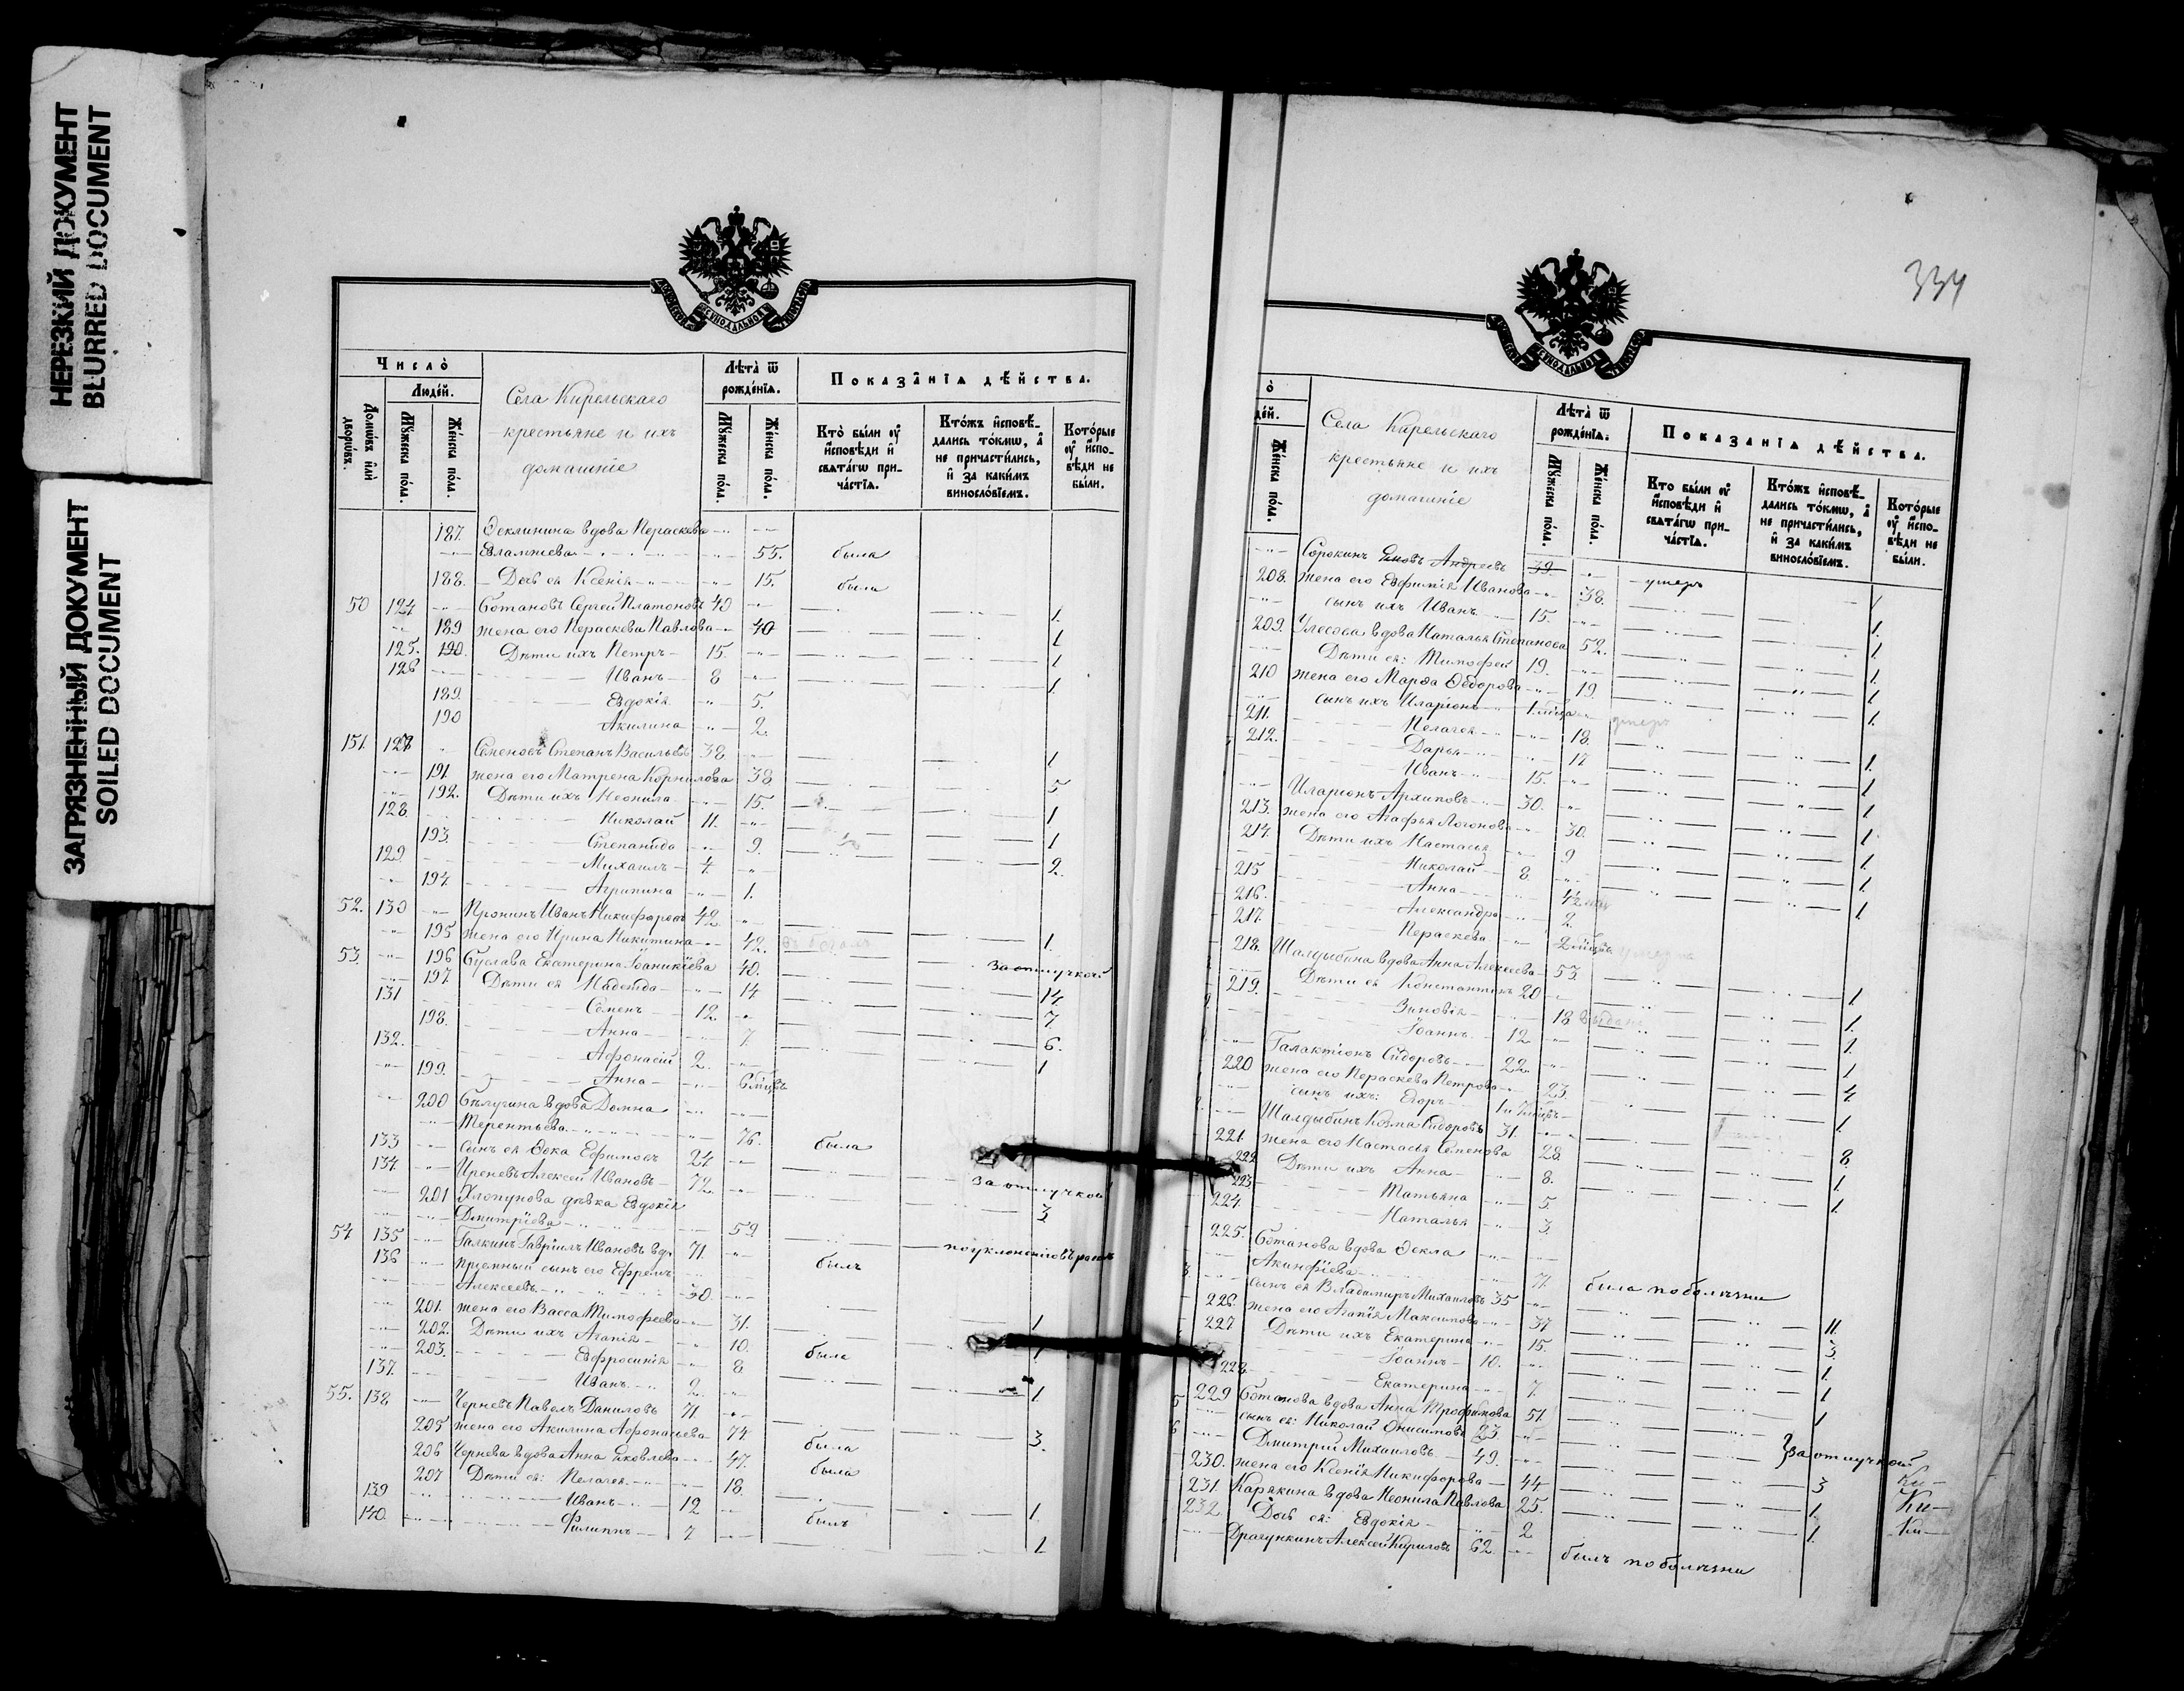 НЕРЕЗКИЙ ДОКУМЕНТ
BLURRED DOCUMENT
ЗАГРЯЗНЕННЫЙ ДОКУМЕНТ
SOILED DOCUMENT
Число̀
Людéй.
Домѡвъ и҆лѝ дворѡвъ.
Мꙋ́жеска по́ла.
Же́нска по́ла.
Села Кирельскаго
крестьяне и ихъ
домашніе
Лѣта̀ ѿ рожде́нїѧ.
Мꙋ́жеска по́ла.
Же́нска по́ла.
Показа̑нїѧ дѣ́йства.
Кто̀ бы́ли ᲂу҆ и҆́сповѣди и҆ свѧта́гѡ прича́стїѧ.
Кто́жъ и҆сповѣ́дались то́кмѡ, а҆ не причасти́лись, и҆ за каки́мъ винослові́емъ.
Кото́рые ᲂу҆ и҆́сповѣди не бы́ли.
187. Феклинина вдова Пераскева
Евлампиева 55. была
188. Дочь ея Ксенія 15. была
50 124 Ботановъ Сергей Платоновъ 40 1.
189 жена его Пераскева Павлова 40 1
125. 190. Дѣти ихъ Петръ 15. 1
126 Иванъ 8 1.
189. Евдокія 5.
190 Акилина 2.
151. 127 Семеновъ Степанъ Васильевъ 38. 1
191. жена его Матрена Корнилова 38 5
192. Дѣти ихъ Неонила 15. 1
128. Николай 11. 1
193. Степанида 9. 2.
129. Михаилъ 4.
194. Агрипина 1.
52. 130 Пронинъ Иванъ Никифоровъ 42. 1.
195 жена его Ирина Никитина 42. за отлучкой
53. 196 Буслава Екатерина Іоаникіева 40. 14.
197. Дѣти ея Надежда 14 7.
131 Семенъ 12. 6.
198. Анна 7. 1
132. Афонасій 2.
199. Анна 6 мѣцвъ
200 Бѣлугина вдова Домна
Терентьева 76. была
133 сынъ ея Фока Ефимовъ 24 за отлучкой
134 Иреневъ Алексей Ивановъ 72. 3
201 Хлопунова дѣвка Евдокія
Дмитріева 59
54 135 Галкинъ Гавріилъ Ивановъ вд. 71. былъ
136 пріемный сынъ его Ефремъ
Алексеевъ 30. 1
201. жена его Васса Тимофеева 31. 1
202. Дѣти ихъ Агапія 10. была
203. Евфросинія 8 1.
137. Иванъ 2.
55. 138 Черневъ Павелъ Даниловъ 71. 3.
205 жена его Акилина Афонасьева 74 была
206 Чернева вдова Анна Яковлева 47. была
207 Дѣти ея: Пелагея 18. 1
139 Иванъ 12 былъ
140. Филиппъ 7 1
334
Же́нска по́ла.
Села Кирельскаго
крестьяне и ихъ
домашніе
Лѣта̀ ѿ рожде́нїѧ.
Мꙋ́жеска по́ла.
Же́нска по́ла.
Показа̑нїѧ дѣ́йства.
Кто̀ бы́ли ᲂу҆ и҆́сповѣди и҆ свѧта́гѡ прича́стїѧ.
Кто́жъ и҆сповѣ́дались то́кмѡ, а҆ не причасти́лись, и҆ за каки́мъ винослові́емъ.
Кото́рые ᲂу҆ и҆́сповѣди не бы́ли.
Сорокинъ Яковъ Андреевъ 39. умеръ
208. жена его Евфимія Иванова 38. 1
сынъ ихъ Иванъ 15. 1.
209. Улесова вдова Наталья Степанова 52. 1
Дѣти ея: Тимофей 19. 1
210 жена его Марфа Ѳедорова 19. 1
сынъ ихъ Иларіонъ умеръ
211. Пелагея 18. 1.
212. Дарья 17 1
Иванъ 15. 1
Иларіонъ Архиповъ 30. 1
213. жена его Агафья Логонова 30. 1
214. Дѣти ихъ Настасья 9 1
Николай 8 1
215 Анна
216. Александра 2.
217. Пераскева
218. Шалдыбина вдова Анна Алексеева 53 1
Дѣти ея Константинъ 20 1.
219. Зиновія 18 1.
Іоаннъ 12 1
Галактіонъ Сидоровъ 22 4
220 жена его Пераскева Петрова 23. 1.
сынъ ихъ: Егоръ
Шалдыбинъ Козма Сидоровъ 31. 8
221. жена его Настасья Семенова 28 1
222 Дѣти ихъ Анна 8. 1
223 Татьяна 5
224. Наталья 3
225. Ботанова вдова Фекла
Акинфіева 71. была по болѣзни
сынъ ея Владимиръ Михаиловъ 35 11.
226. жена его Агапія Максимова 37 3.
227 Дѣти ихъ Екатерина 15. 1
Іоаннъ 10. 1
228. Екатерина 7. 1
229 Ботанова вдова Анна Трофимова 51
сынъ ея: Николай Онисимовъ 23 за отлучкой
Дмитрій Михаиловъ 49. 3
230. жена его Ксенія Никифорова 44 1.
231. Карякина вдова Неонила Павлова 25. 1.
232 Дочь ея: Евдокія 2
Драгункинъ Алексей Кириловъ 62. былъ по болѣзни